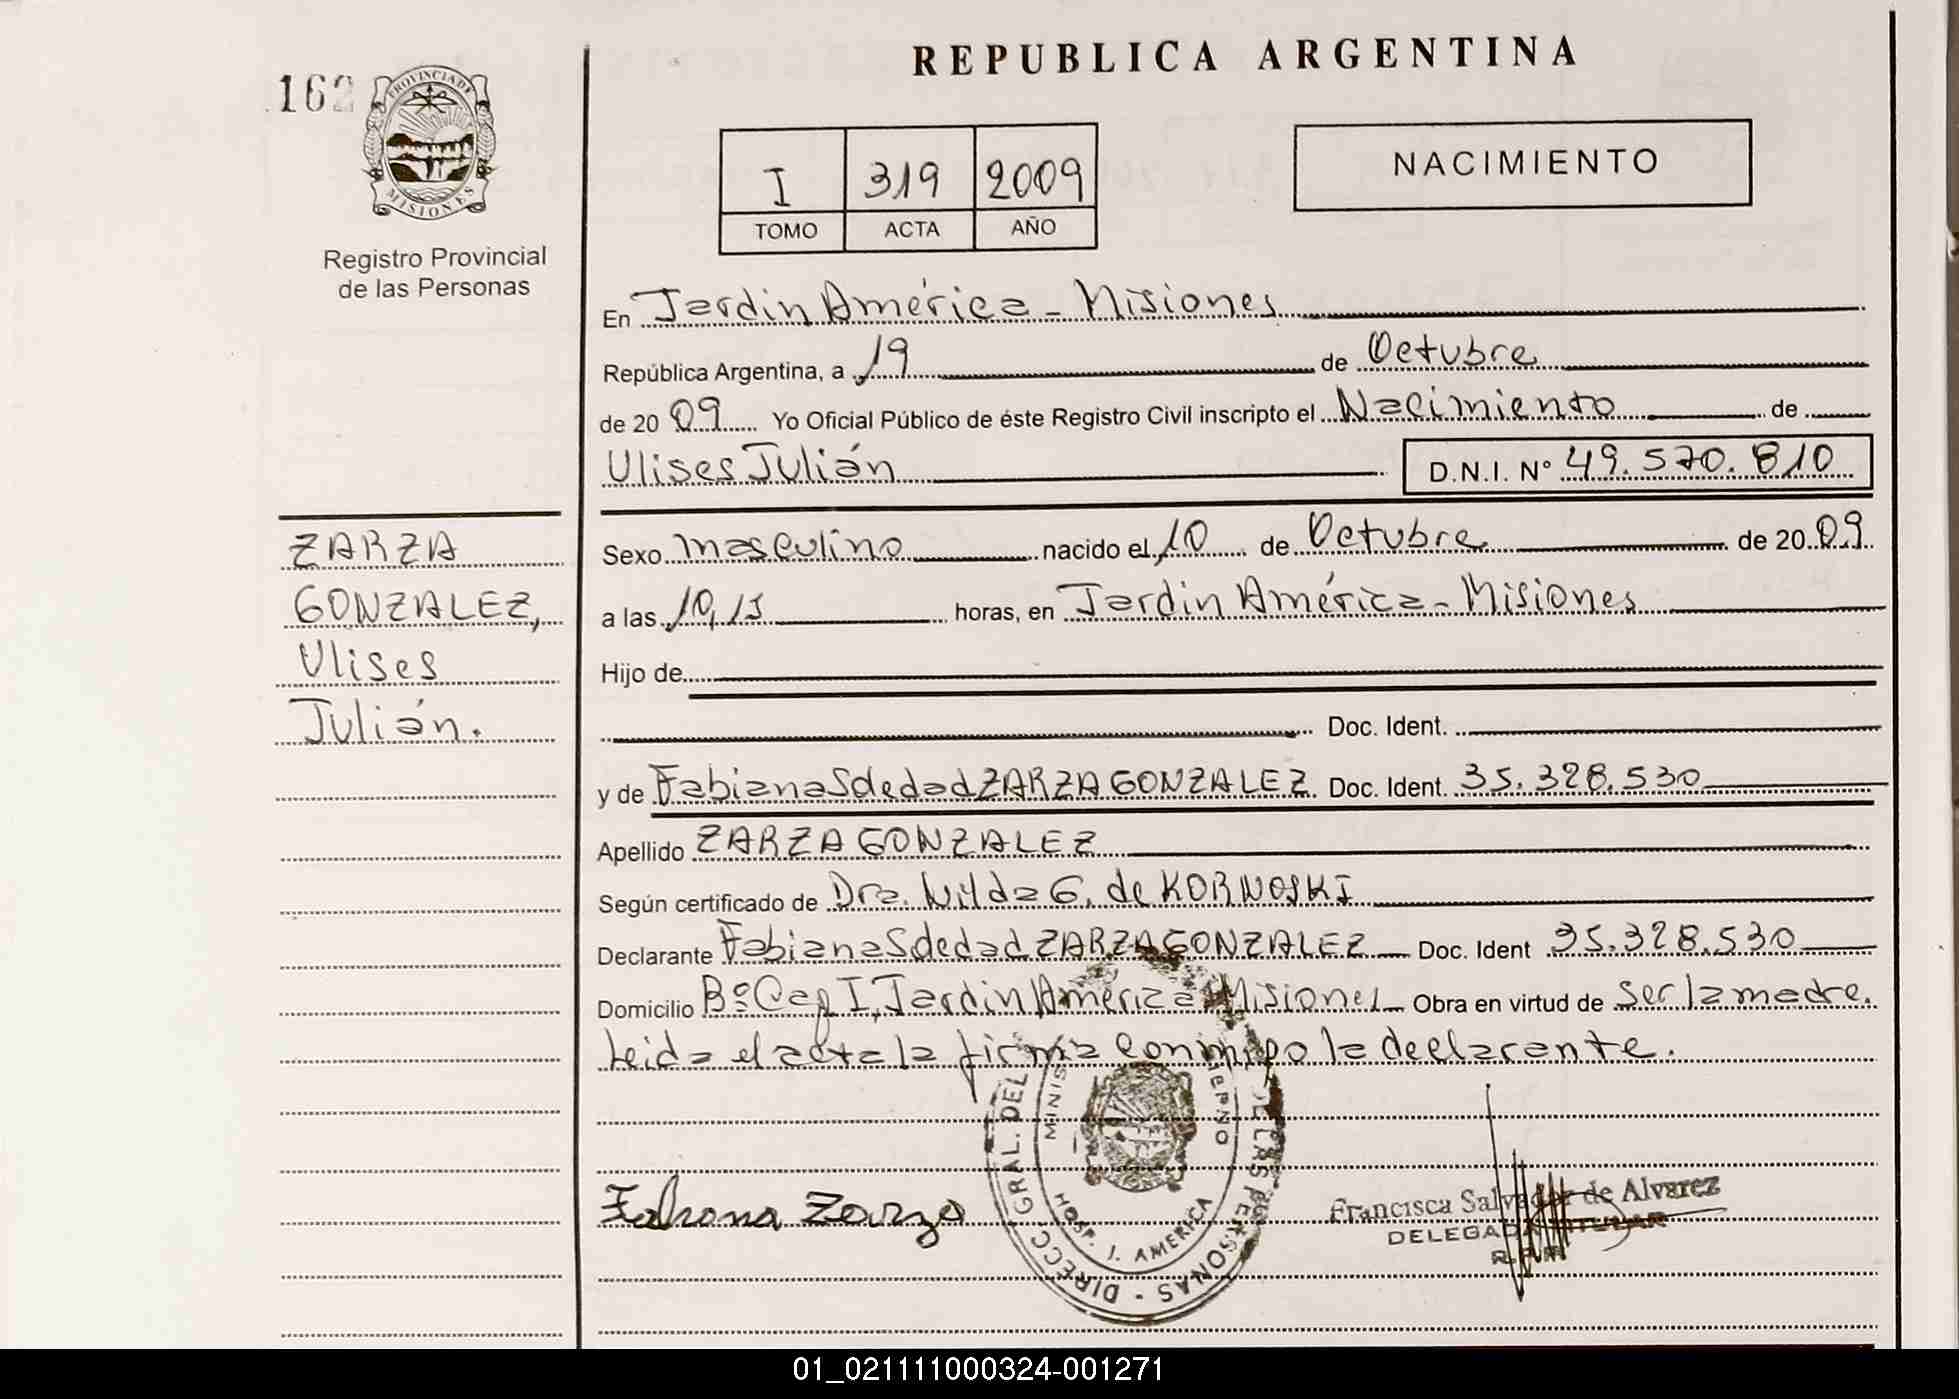 REPUBLICA ARGENTINA
162
PROVINCIA DE
MISIONES
Registro Provincial
de las Personas
I 319 2009
TOMO ACTA AÑO
NACIMIENTO
En Jardin América - Misiones
República Argentina, a 19 de Octubre
de 20 09 Yo Oficial Público de éste Registro Civil inscripto el Nacimiento de
Ulises Julián D.N.I. Nº 49.570.810
ZARZA
GONZALEZ,
Ulises
Julián.
Sexo masculino nacido el 10 de Octubre de 20 09
a las 10,15 horas, en Jardin América - Misiones
Hijo de
Doc. Ident.
y de Fabiana Soledad ZARZA GONZALEZ Doc. Ident. 35.328.530
Apellido ZARZA GONZALEZ
Según certificado de Dra. Nilda G. de KORNOSKI
Declarante Fabiana Soledad ZARZA GONZALEZ Doc. Ident 35.328.530
Domicilio Bº I, Jardin América Misiones Obra en virtud de ser la madre.
Leida el acta la firma conmigo la declarante.
DIRECC. GRAL. DEL DE LAS PERSONAS -
HOSP. J. AMERICA
Fabiana Zarza
Francisca Salvador de Alvarez
DELEGADA TITULAR
R.P.P.
01_021111000324-001271